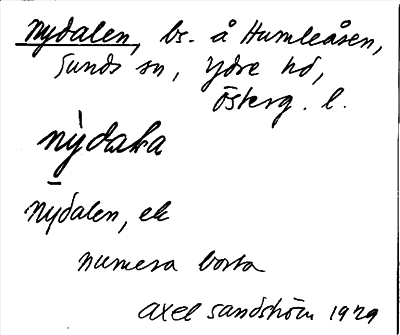 Nydalen, bs. å Humleåsen,
Sunds sn, Ydre hd,
Österg. l.
nỳdaka
Nydalen, ek
numera borta
Axel Sandström 1929